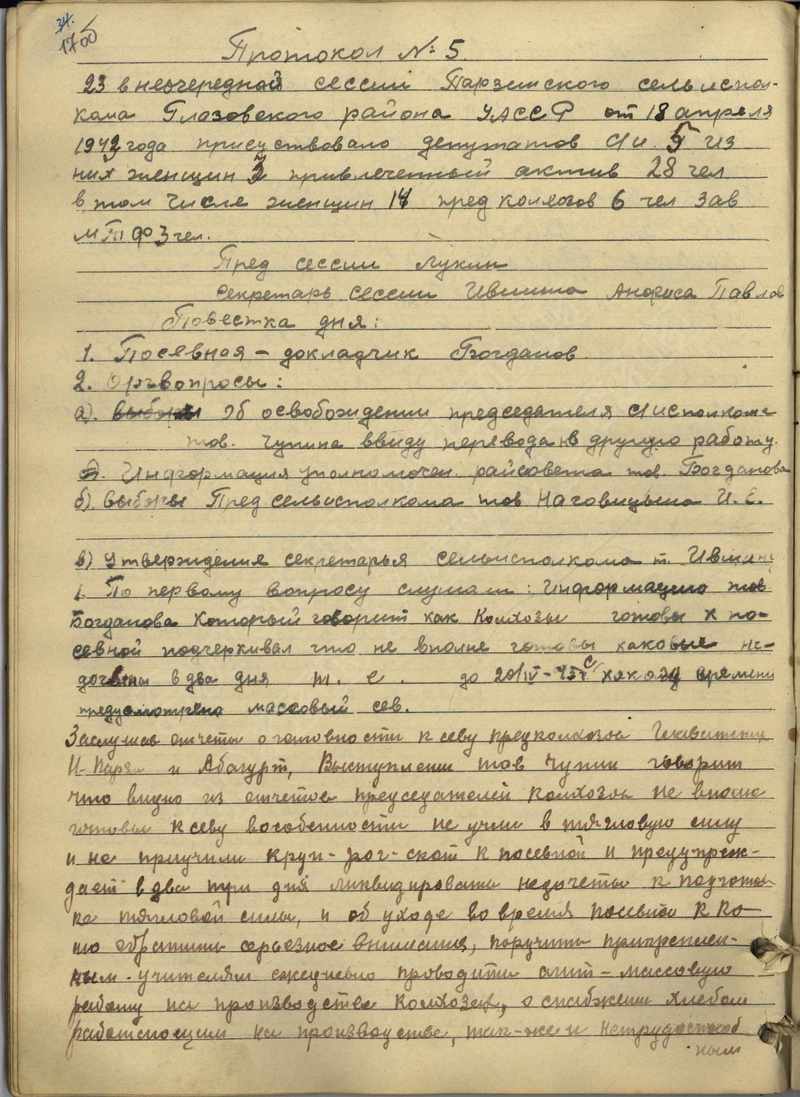 34.
1700
Протокол № 5.
23 внеочередной сессии Парзинского сельиспол-
кома Глазовского района УАССР от 18 апреля
1943 года присуствовало депутатов с/и. 5 из
них женщин 3 привлеченный актив 28 чел
в том числе женщин 14 пред колхозов 6 чел зав
МТФ 3 чел.
Пред сессии Лукин
Секретарь сессии Ившина Анфиса Павлов
Повестка дня:
1. Посевная – докладчик Богданов
2. Оргвопросы:
а). выборы Об освобождении председателя с/исполкома
тов. Чупина ввиду перевода на другую работу.
Информация уполномочен. райсовета тов. Богданова
б). выборы Пред сельисполкома тов Наговицына И. С.
в) Утверждения секретарья сельисполкома т.
1. По первому вопросу слушали: Информацию тов
Богданова который говорит как колхозы готовы к по-
севной подчеркивал что не вполне готовы каковые не-
в два дня т. е. до 20/IV-43 г. времени
предусмотрено массовый сев.
Заслушав отчеты о готовности к севу предколхозов
и Абагурт, Выступлении тов Чупин говорит
что видно из отчетов председателей колхозов не вполне
готовы к севу вособенности не учли в тягловую силу
и не приучили круп-рог-скот к посевной и предупреж-
дает в два три дня ликвидировать недочеты к подготов
ке тягловой силы, и об уходе во время посевной к ко-
ню обратить серьезное внимания, поручить прикреплен-
ным учителям ежедневно проводить агит-массовую
работу на производстве колхозов, о снабжении хлебом
работающим на производстве, так-же и нетрудоспособ
ным